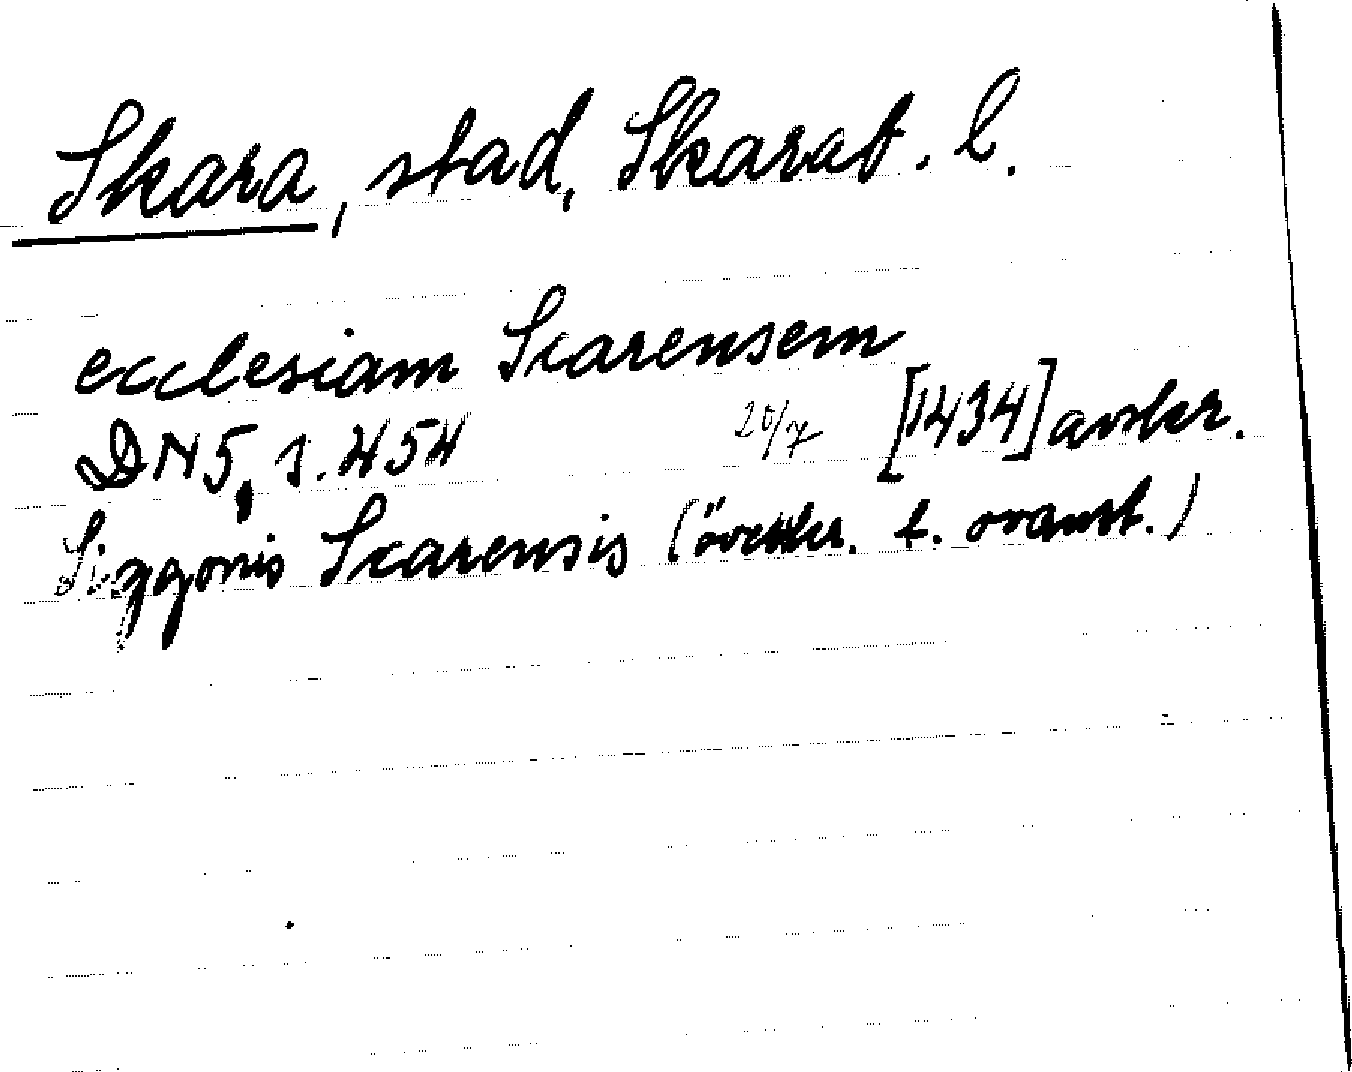 Skara, stad, Skarab. l.
ecclesiam Scarensem
DN 5, s. 454 20/7 [1434] avskr.
Siggonis Scarensis (överskr. t. ovanst.)